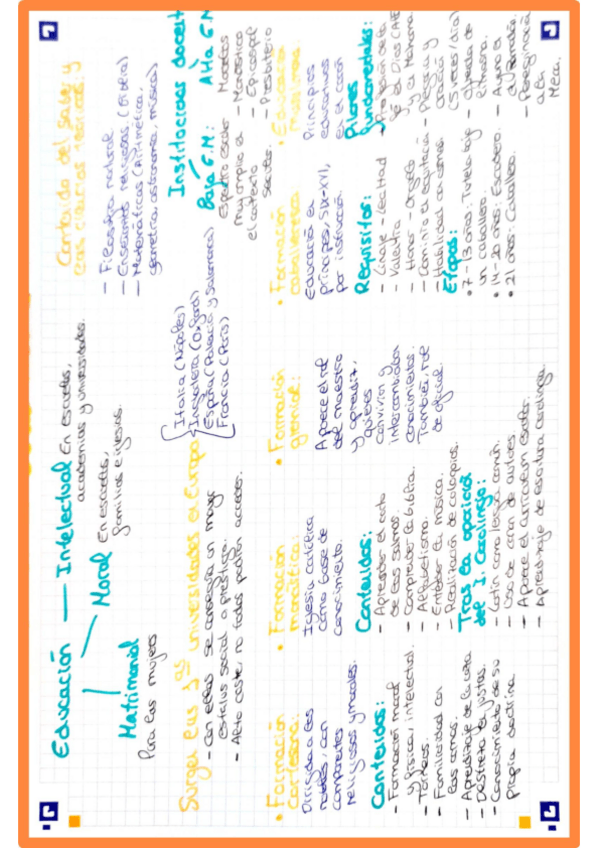 Educación — Intelectual En escuelas,
academias y universidades.
Moral En escuelas,
familias e iglesias.
Matrimonial
Para las mujeres
Contenido del saber y
- Filosofía natural
- Enseñanzas religiosas (Biblia)
- Matemáticas (Aritmética,
geometría, astronomía, música)
Surgen las 1ªˢ universidades en Europa
- Con ellas se conseguía un mayor
estatus social o prestigio.
- Alto coste: no todos podían acceder.
Italia (Nápoles)
Inglaterra (Oxford)
España (Palencia y Salamanca)
Francia (París)
Instituciones docent
Baja E.M:
Muy amplio el
el contexto
Alta E.M
Modelos
- Monástico
- Episcopal
- Presbiterio
• Formación
Cortesana:
Dirigida a los
nobles, con
componentes
religiosos y morales.
Contenidos:
- Formación moral
y física, intelectual.
- Torneos.
- Familiaridad con
las armas.
- Aprendizaje de la caza
- Destreza en justas.
- Conocimiento de su
propia doctrina.
• Formación
monástica:
Iglesia católica
como base de
conocimiento.
Contenidos:
- Aprender el canto
de los salmos.
- Comprender la biblia.
- Alfabetismo.
- Entender la música.
- Realización de
Tras la aparición
del I. Carolingio:
- Latín como lengua común.
- Uso de canon de autores.
- Aparece el currículum escolar.
- Aprendizaje de escritura carolingia.
• Formación
gremial:
Aparece el rol
del maestro
y aprendiz,
quienes
convivían y
intercambiaban
conocimientos.
También, rol
de oficial.
• Formación
caballeresca
Educación en
principios, S.IX-XVI,
por instrucción.
Requisitos:
- Linaje - Lealtad
- Valentía
- Honor - Orgullo
- Dominio en equitación
- Habilidad con armas.
Etapas:
• 7-13 años: Tutela bajo
un caballero.
• 14-20 años: Escudero.
• 21 años: Caballero.
• Educación
Musulmana.
Principios
educativos
en el corán
Pilares
fundamentales:
y en Mahoma
- Plegaria y
oración
(5 veces/día)
- Ofrenda de
limosna.
- Ayuno en
el Ramadán.
- Peregrinación
a la
Meca.